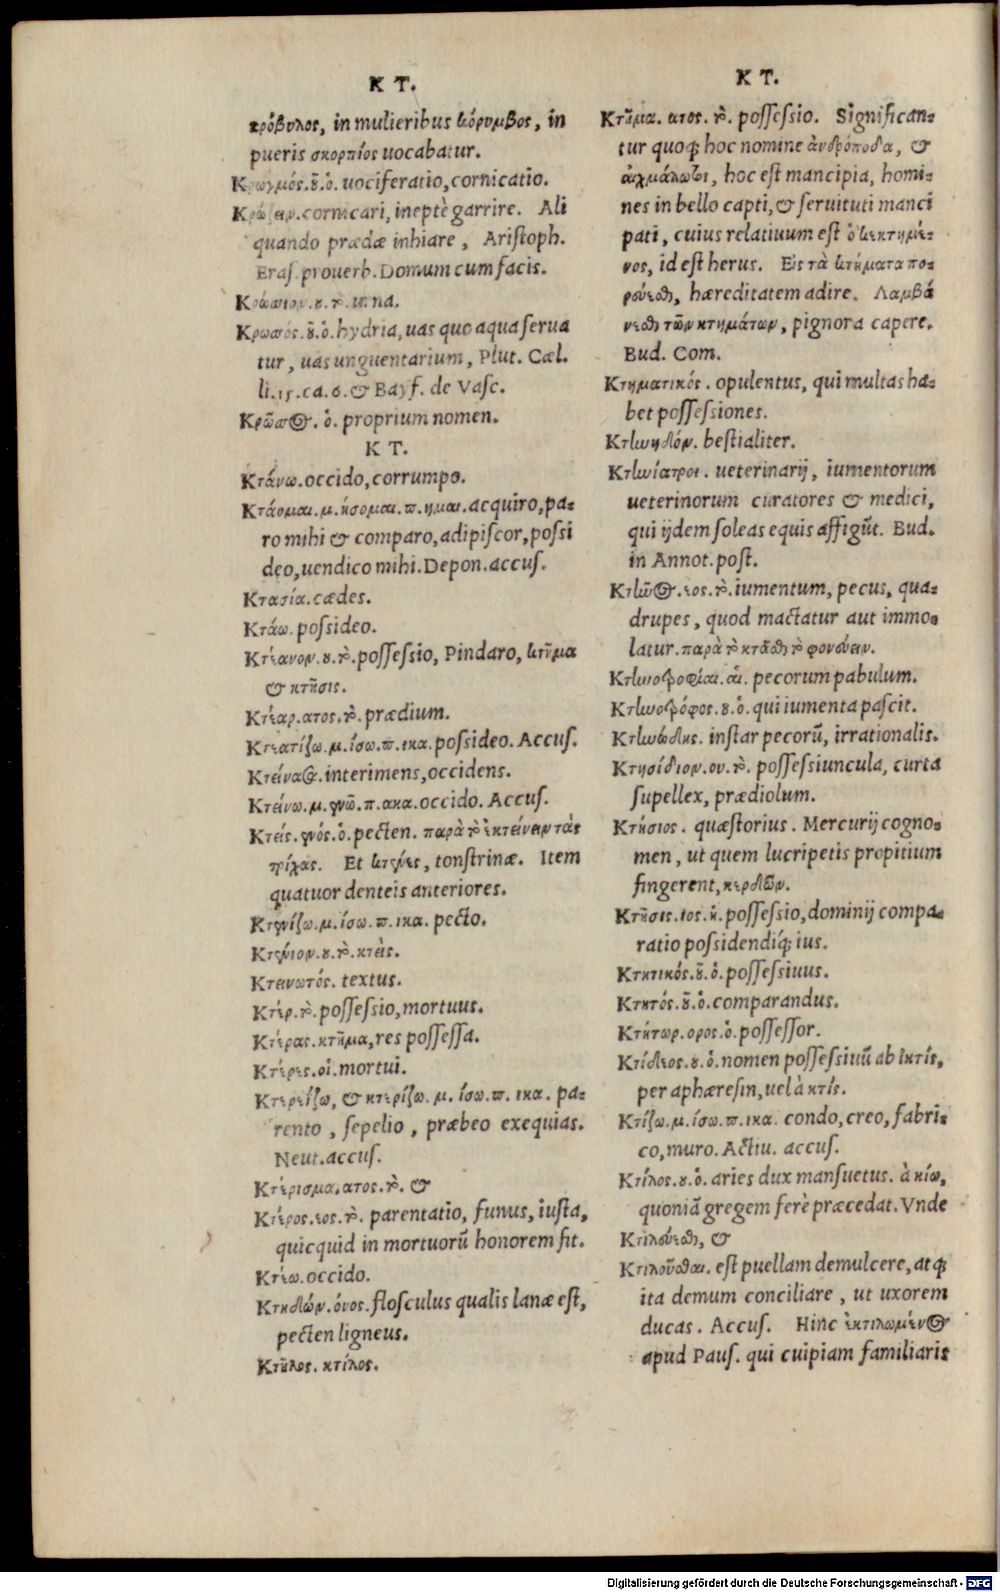 Κ Τ.
κρόβυλος, in mulieribus κόρυμβος, in
pueris σκορπίος uocabatur.
Κρωγμός.ȣ̃.ὁ. uociferatio, cornicatio.
Κρώζειν. cornicari, ineptè garrire. Ali
quando prædæ inhiare, Aristoph.
Eras. prouerb. Domum cum facis.
Κρώπιον.ȣ.τὸ. urna.
Κρωσσός.ȣ̃.ὁ. hydria, uas quo aqua serua
tur, uas unguentarium, Plut. Cæl.
li.15.ca.6. & Bayf. de Vasc.
Κρῶσος. ὁ. proprium nomen.
Κ Τ.
Κτάνω. occido, corrumpo.
Κτάομαι.μ.ήσομαι.π.ημαι. acquiro, pa-
ro mihi & comparo, adipiscor, possi
deo, uendico mihi. Depon. accus.
Κτασία. cædes.
Κτάω. possideo.
Κτέανον.ȣ.τὸ. possessio, Pindaro, κτῆμα
& κτῆσις.
Κτέαρ.ατος.τὸ. prædium.
Κτεατίζω.μ.ίσω.π.ικα. possideo. Accus.
Κτείνας. interimens, occidens.
Κτείνω.μ.ενῶ.π.ακα. occido. Accus.
Κτείς.ενός.ὁ. pecten. παρὰ τὸ ἐκτείνειν τὰς
τρίχας. Et κτένες, tonstrinæ. Item
quatuor denteis anteriores.
Κτενίζω.μ.ίσω.π.ικα. pecto.
Κτένιον.ȣ.τὸ.κτεὶς.
Κτεινωτός. textus.
Κτέρ.τὸ. possessio, mortuus.
Κτέρας. κτῆμα, res possessa.
Κτέρες.οἱ. mortui.
Κτερεΐζω, & κτερίζω. μ. ίσω.π. ικα. pa-
rento, sepelio, præbeo exequias.
Neut. accus.
Κτέρισμα.ατος.τὸ. &
Κτέρος.εος.τὸ. parentatio, funus, iusta,
quicquid in mortuorũ honorem fit.
Κτέω. occido.
Κτηδών.όνος. flosculus qualis lanæ est,
pecten ligneus.
Κτῆλος. κτίλος.
Κ Τ.
Κτῆμα. ατος. τὸ. possessio. Significan-
tur quoq; hoc nomine ἀνδρόποδα, &
αἰχμάλωτοι, hoc est mancipia, homi-
nes in bello capti, & seruituti manci
pati, cuius relatiuum est ὁ κεκτημέ-
νος, id est herus. Εἰς τὰ κτήματα πο-
ρεύεσθαι, hæreditatem adire. Λαμβά
νεσθαι τῶν κτημάτων, pignora capere.
Bud. Com.
Κτηματικός. opulentus, qui multas ha-
bet possessiones.
Κτηνηδόν. bestialiter.
Κτηνίατροι. ueterinarij, iumentorum
ueterinorum curatores & medici,
qui ijdem soleas equis affigũt. Bud.
in Annot. post.
Κτῆνος.εος.τὸ. iumentum, pecus, qua-
drupes, quod mactatur aut immo-
latur. παρὰ τὸ κτᾶσθαι τὸ φονεύειν.
Κτηνοτροφίαι.αἱ. pecorum pabulum.
Κτηνοτρόφος.ȣ.ὁ. qui iumenta pascit.
Κτηνώδης. instar pecorũ, irrationalis.
Κτησίδιον.ου.τὸ. possessiuncula, curta
supellex, prædiolum.
Κτήσιος. quæstorius. Mercurij cogno-
men, ut quem lucripetis propitium
fingerent, κερδῶν.
Κτῆσις.ιος.ἡ. possessio, dominij compa-
ratio possidendíq; ius.
Κτητικός.ȣ̃.ὁ. possessiuus.
Κτητός.ȣ̃.ὁ. comparandus.
Κτήτωρ.ορος.ὁ. possessor.
Κτίδεος.ȣ.ὁ. nomen possessiuũ ab ἰκτίς,
per aphæresin, uel à κτίς.
Κτίζω.μ.ίσω.π.ικα. condo, creo, fabri-
co, muro. Actiu. accus.
Κτίλος.ȣ.ὁ. aries dux mansuetus. à κίω,
quoniã gregem ferè præcedat. Vnde
Κτιλεύεσθαι, &
Κτιλοῦσθαι. est puellam demulcere, atq;
ita demum conciliare, ut uxorem
ducas. Accus. Hinc ἐκτιλωμένος
apud Paus. qui cuipiam familiaris
Digitalisierung gefördert durch die Deutsche Forschungsgemeinschaft - DFG